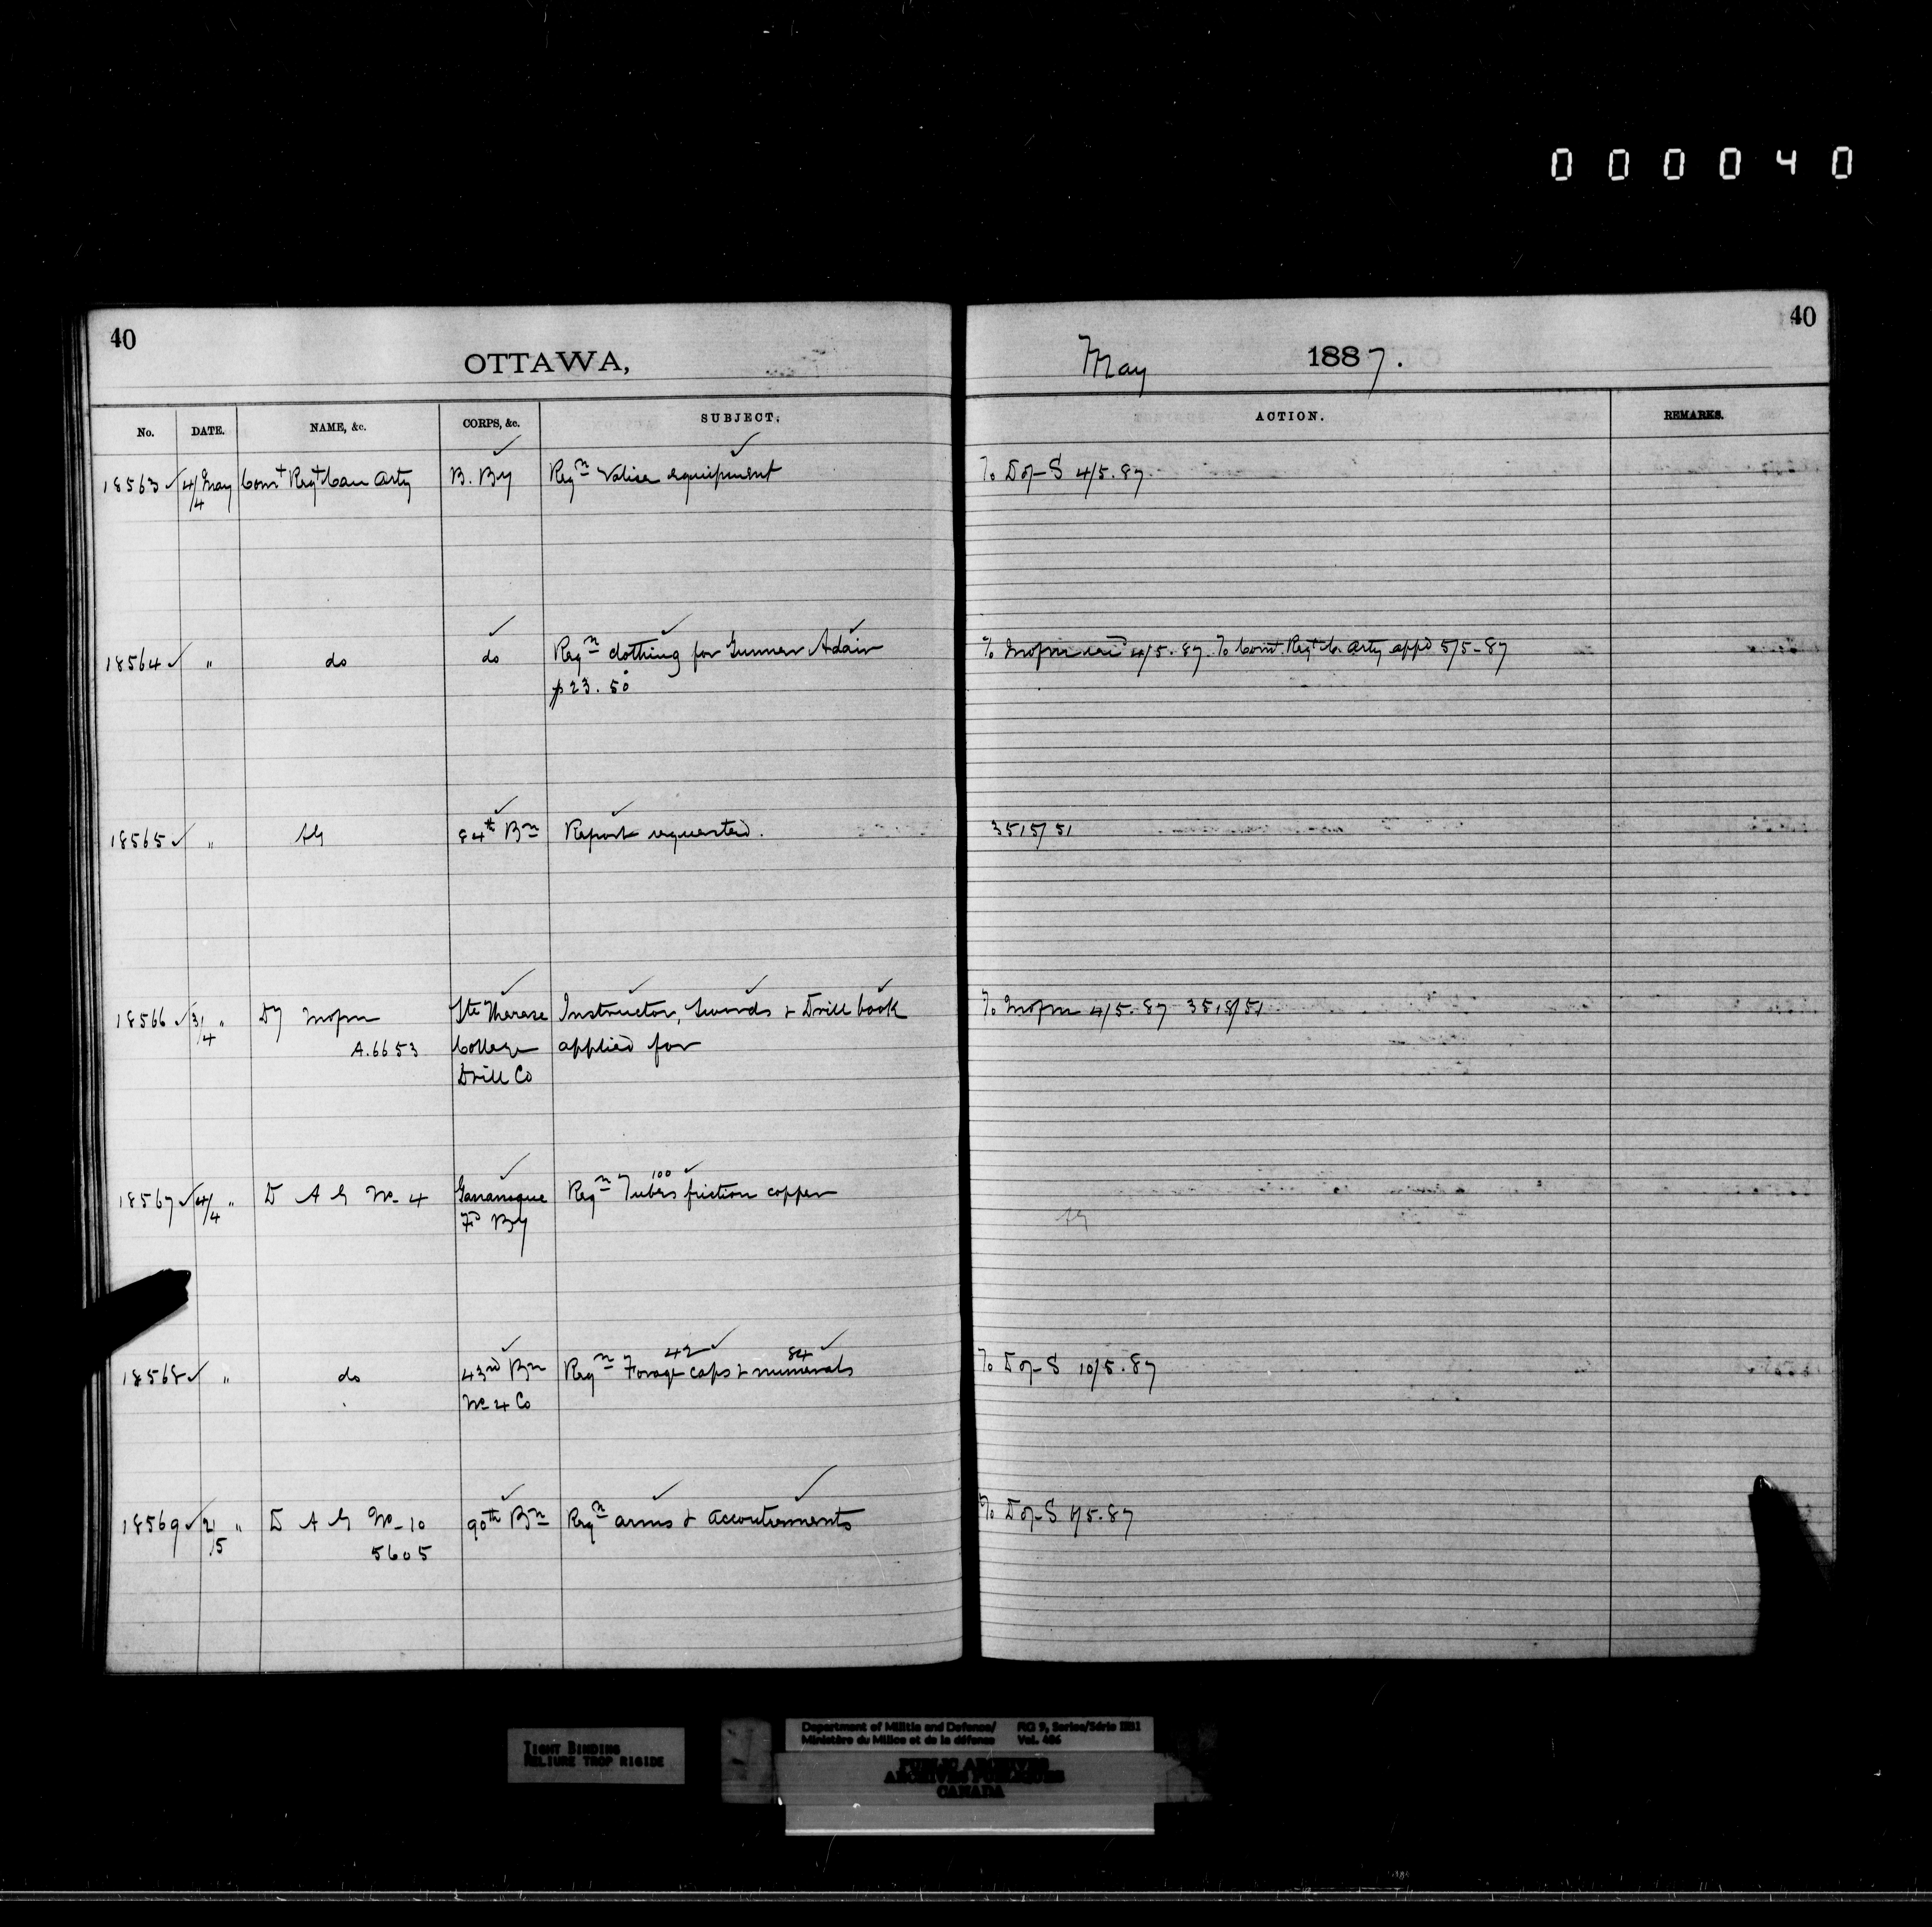 000040
40
OTTAWA,
No. DATE. NAME, &c. CORPS, &c. SUBJECT.
18563 4/4 May Comt Regt Can Arty B. By Reqn Valise equipment
18564 " do do Reqn clothing for Gunner Adair
$23.50
18565 " AG 84th Bn Report requested.
18566 3/4 " Dy Ste Therese Instructor, Swords & Drill book
A.6653 College applied for
Drill Co
18567 4/4 " D A G No- 4 Gananoque Reqn Tubes friction copper
100
Fd By
18568 " do 43rd Bn Reqn Forage caps & numerals
42 84
No 4 Co
18569 2/5 " D A G No- 10 90th Bn Reqn arms & accoutrements
5605
40
May 1887.
ACTION. REMARKS.
To D of S 4/5.87
To 4/5.87. To Comt. Regt C. Arty appd 5/5-87
3515/51
To 4/5.87 3518/51
AG
To D of S 10/5.87
To D of S /5.87
TIGHT BINDING
RELIURE TROP RIGIDE
Department of Militia and Defence/ RG 9, Series/Série IIB1
Ministère du Milice et de la défense Vol. 486
PUBLIC ARCHIVES
ARCHIVES PUBLIQUES
CANADA